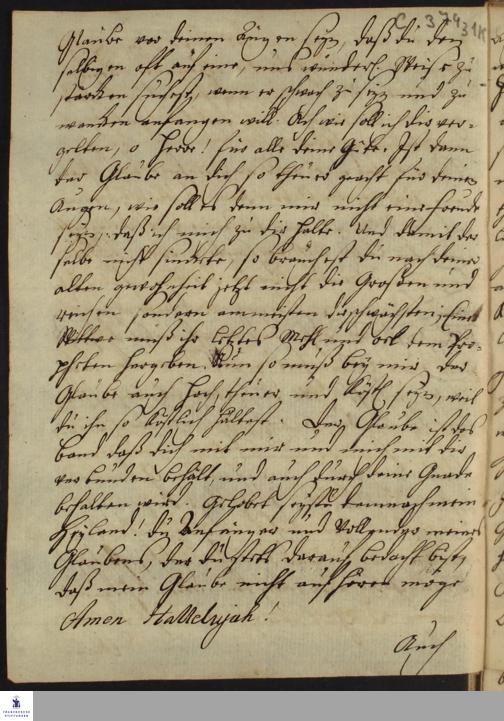 C 374 31k
Glaube vor deinen Augen seyn, daß du den
selbigen oft auf eine, uns wunderl. Weise zu
stärcken suchest, wenn er schwach zu seyn und zu
wancken anfangen will. Ach wie soll ich dir ver-
gelten, o Herr! für alle deine Güte. Ist dann
der Glaube an dich so theuer geacht für deinen
Augen, wie soll es denn mir nicht eine freude
seyn, daß ich mich zu dir halte. Und damit der
selbe nicht hinderte, so brauchest du nach deiner
alten gewohnheit jetzt nicht die Großen und
reichen sondern am meisten die schwächsten; Eine
Wittwe muß ihr letztes Mehl und oel dem Pro-
pheten hergeben. Nun so muß bey mir der
Glaube auch hoch, theuer und köstl. seyn, weil
du ihn so köstlich hältest. Der Glaube ist das
band daß dich mit mir und mich mit dir
verbunden behält, und auch durch deine Gnade
behalten wird. Gelobet seystu demnach mein
Heyland! du Anfänger und Vollender meines
Glaubens, der du stets darauf bedacht bist,
daß mein Glaube nicht aufhören möge
Amen Hallelujah!
Auch
FRANCKESCHE
STIFTUNGEN